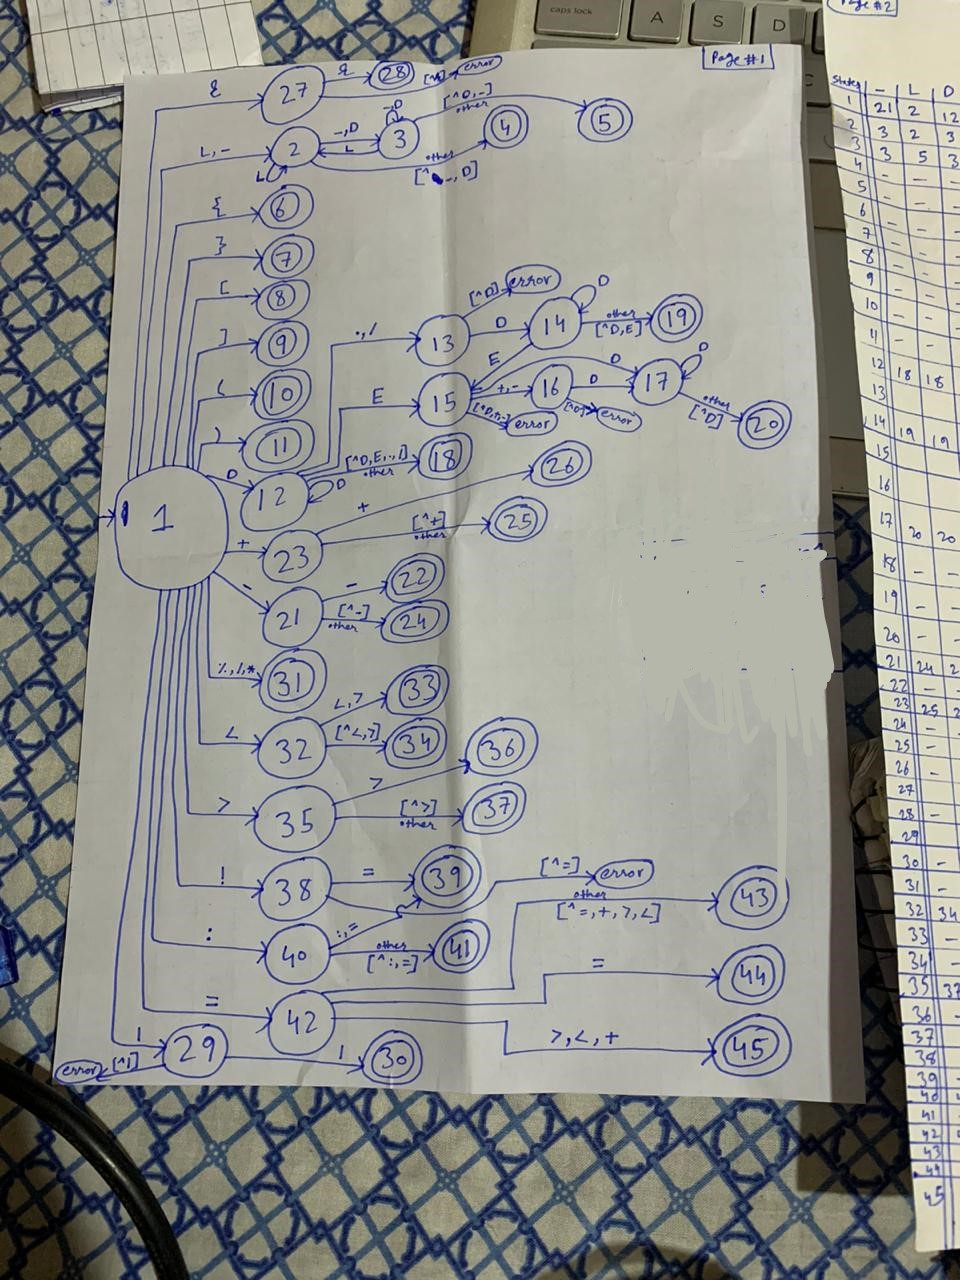 caps lock
A
S
D
Page #2
Page #1
& 27 & 28 [^&] error
L,- 2 -,D 3 -,D [^D,-] other 5
L L other 4
[^ -,D]
{ 6
} 7
[ 8
] 9
( 10
) 11
D 12 D
.,/ 13 [^D] error
D 14 D other [^D,E] 19
E
E 15 D 17 D other [^D] 20
+,- 16 D
error
[^D] error
[^D,E,.,/] other 18
1
+ 23 + 26
[^+] other 25
- 21 - 22
[^-] other 24
%,/,* 31
< 32 <,> 33
[^<,>] 34
> 35 > 36
[^>] other 37
! 38 = 39
[^=] error
: 40 :,= 
other [^:,=] 41
= 42 other [^=,+,>,<] 43
= 44
>,<,+ 45
| 29 | 30
error [^|]
States - L D
1 21 2 12
2 3 2 3
3 3 5 3
4 - - -
5 - -
6 - -
7 - -
8 - -
9 - -
10 - -
11 - -
12 18 18
13
14 19 19
15
16
17 20 20
18 - -
19 - -
20 - -
21 24 2
22 - -
23 25 2
24 -
25 -
26 -
27
28 -
29
30 -
31 -
32 34
33 -
34 -
35 37
36 -
37
38
39 -
40
41 -
42
43
44
45